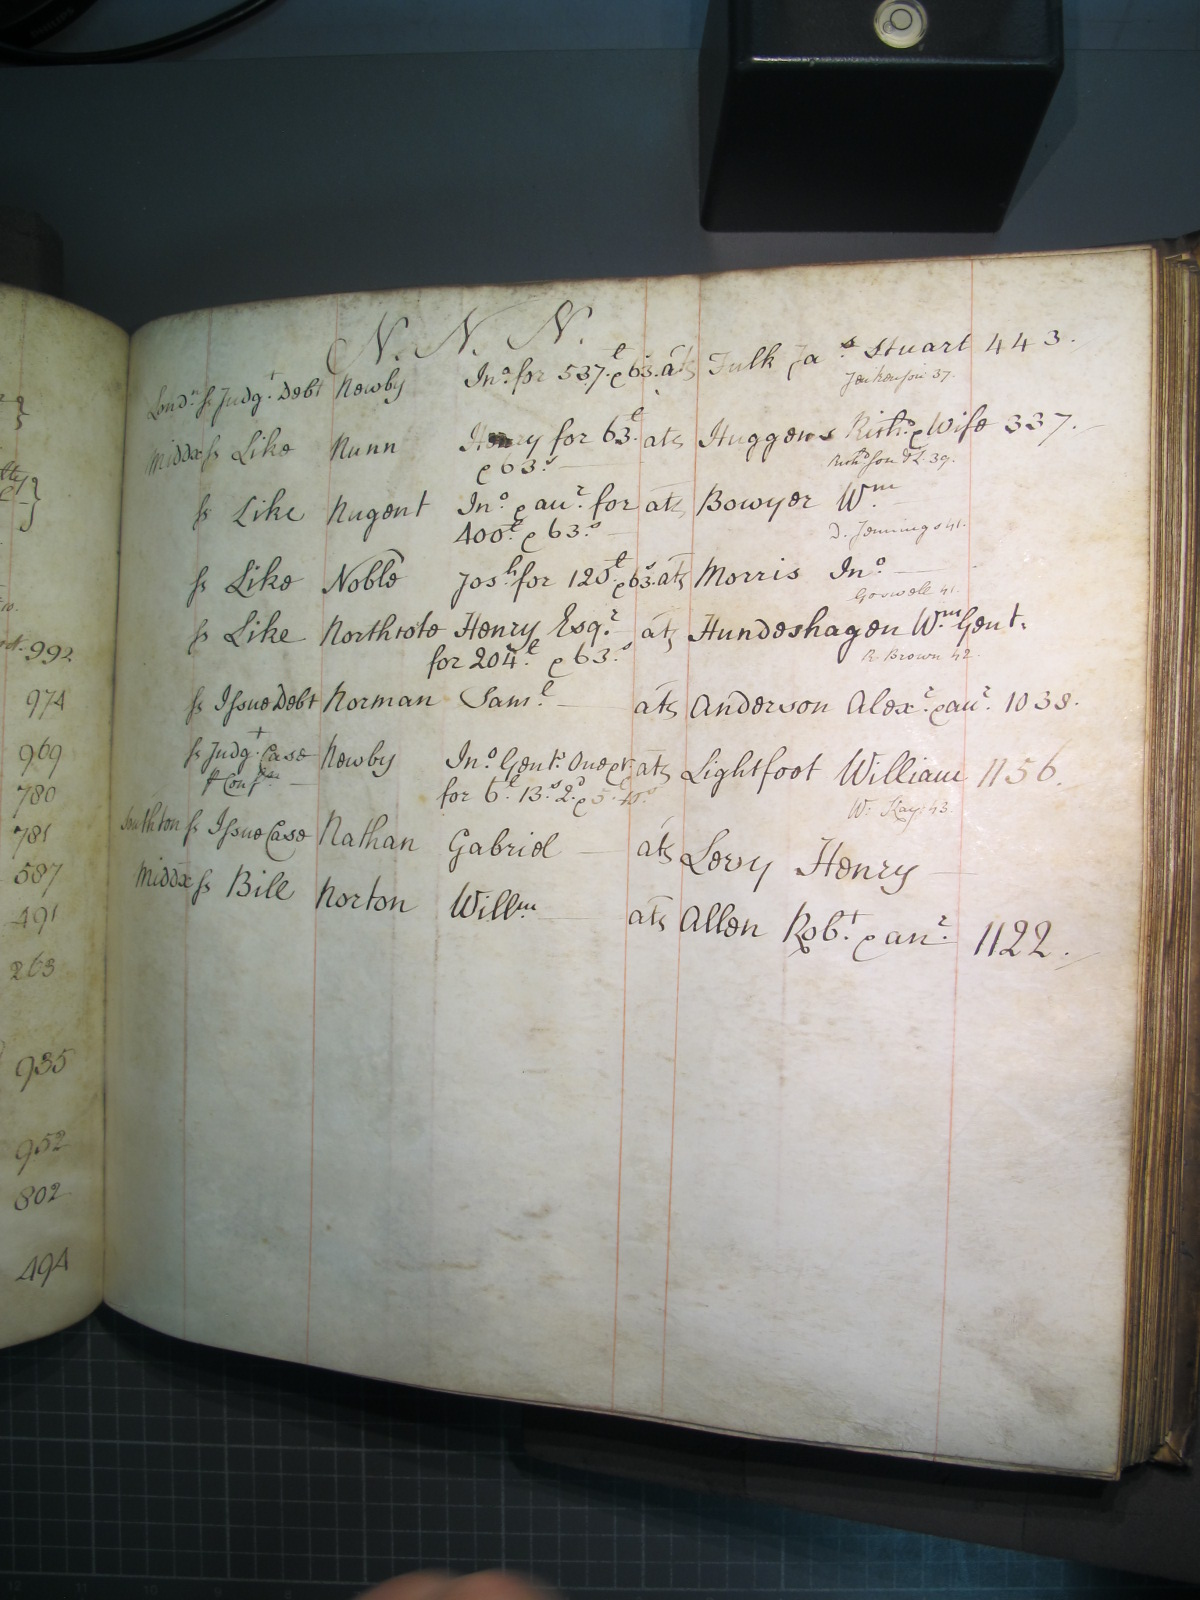 N. N. N.
Lond.n ss Judg.t Debt Newby Jno. for 537.£ & 63.s ats Fulk Ja.s Stuart 443.
Jenkinson 37.
Middx ss Like Nunn Henry for 63.£ ats Huggens Rich.d & Wife 337.
& 63.s
ss Like Nugent Jno. & an.r for ats Bowyer Wm
400.£ & 63.s
D. Jennings 41.
ss Like Noble Jos.h for 120.£ & 63.s ats Morris Jno.
41.
ss Like Northcote Henry Esq.r ats Hundeshagen Wm. Gent.
for 204.£ & 63.s
R Brown 42.
ss Issue Debt Norman Sam.l ats Anderson Alex.r & an.r 1038.
ss Judg.t Case Newby Jno. Gent. One &c ats Lightfoot William 1156.
for 6.£ 13.s 2.d & 5.£
W. Kay 43.
Southton ss Issue Case Nathan Gabriel ats Levy Henry
Middx ss Bill Norton Will.m ats Allen Rob.t & an.r 1122.
992
974
969
780
781
587
491
263
935
952
802
494